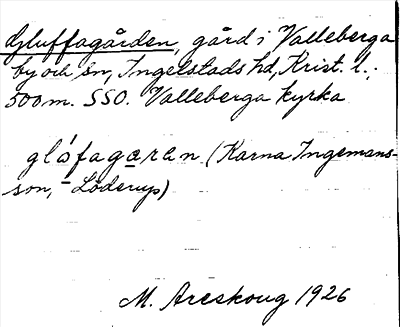 Gluffagården, gård i Valleberga
by och sn, Ingelstads hd, Krist. l.;
500 m. SSO. Valleberga kyrka.
glófagaren (Karna Ingemans-
son, – Löderup)
M. Areskoug 1926